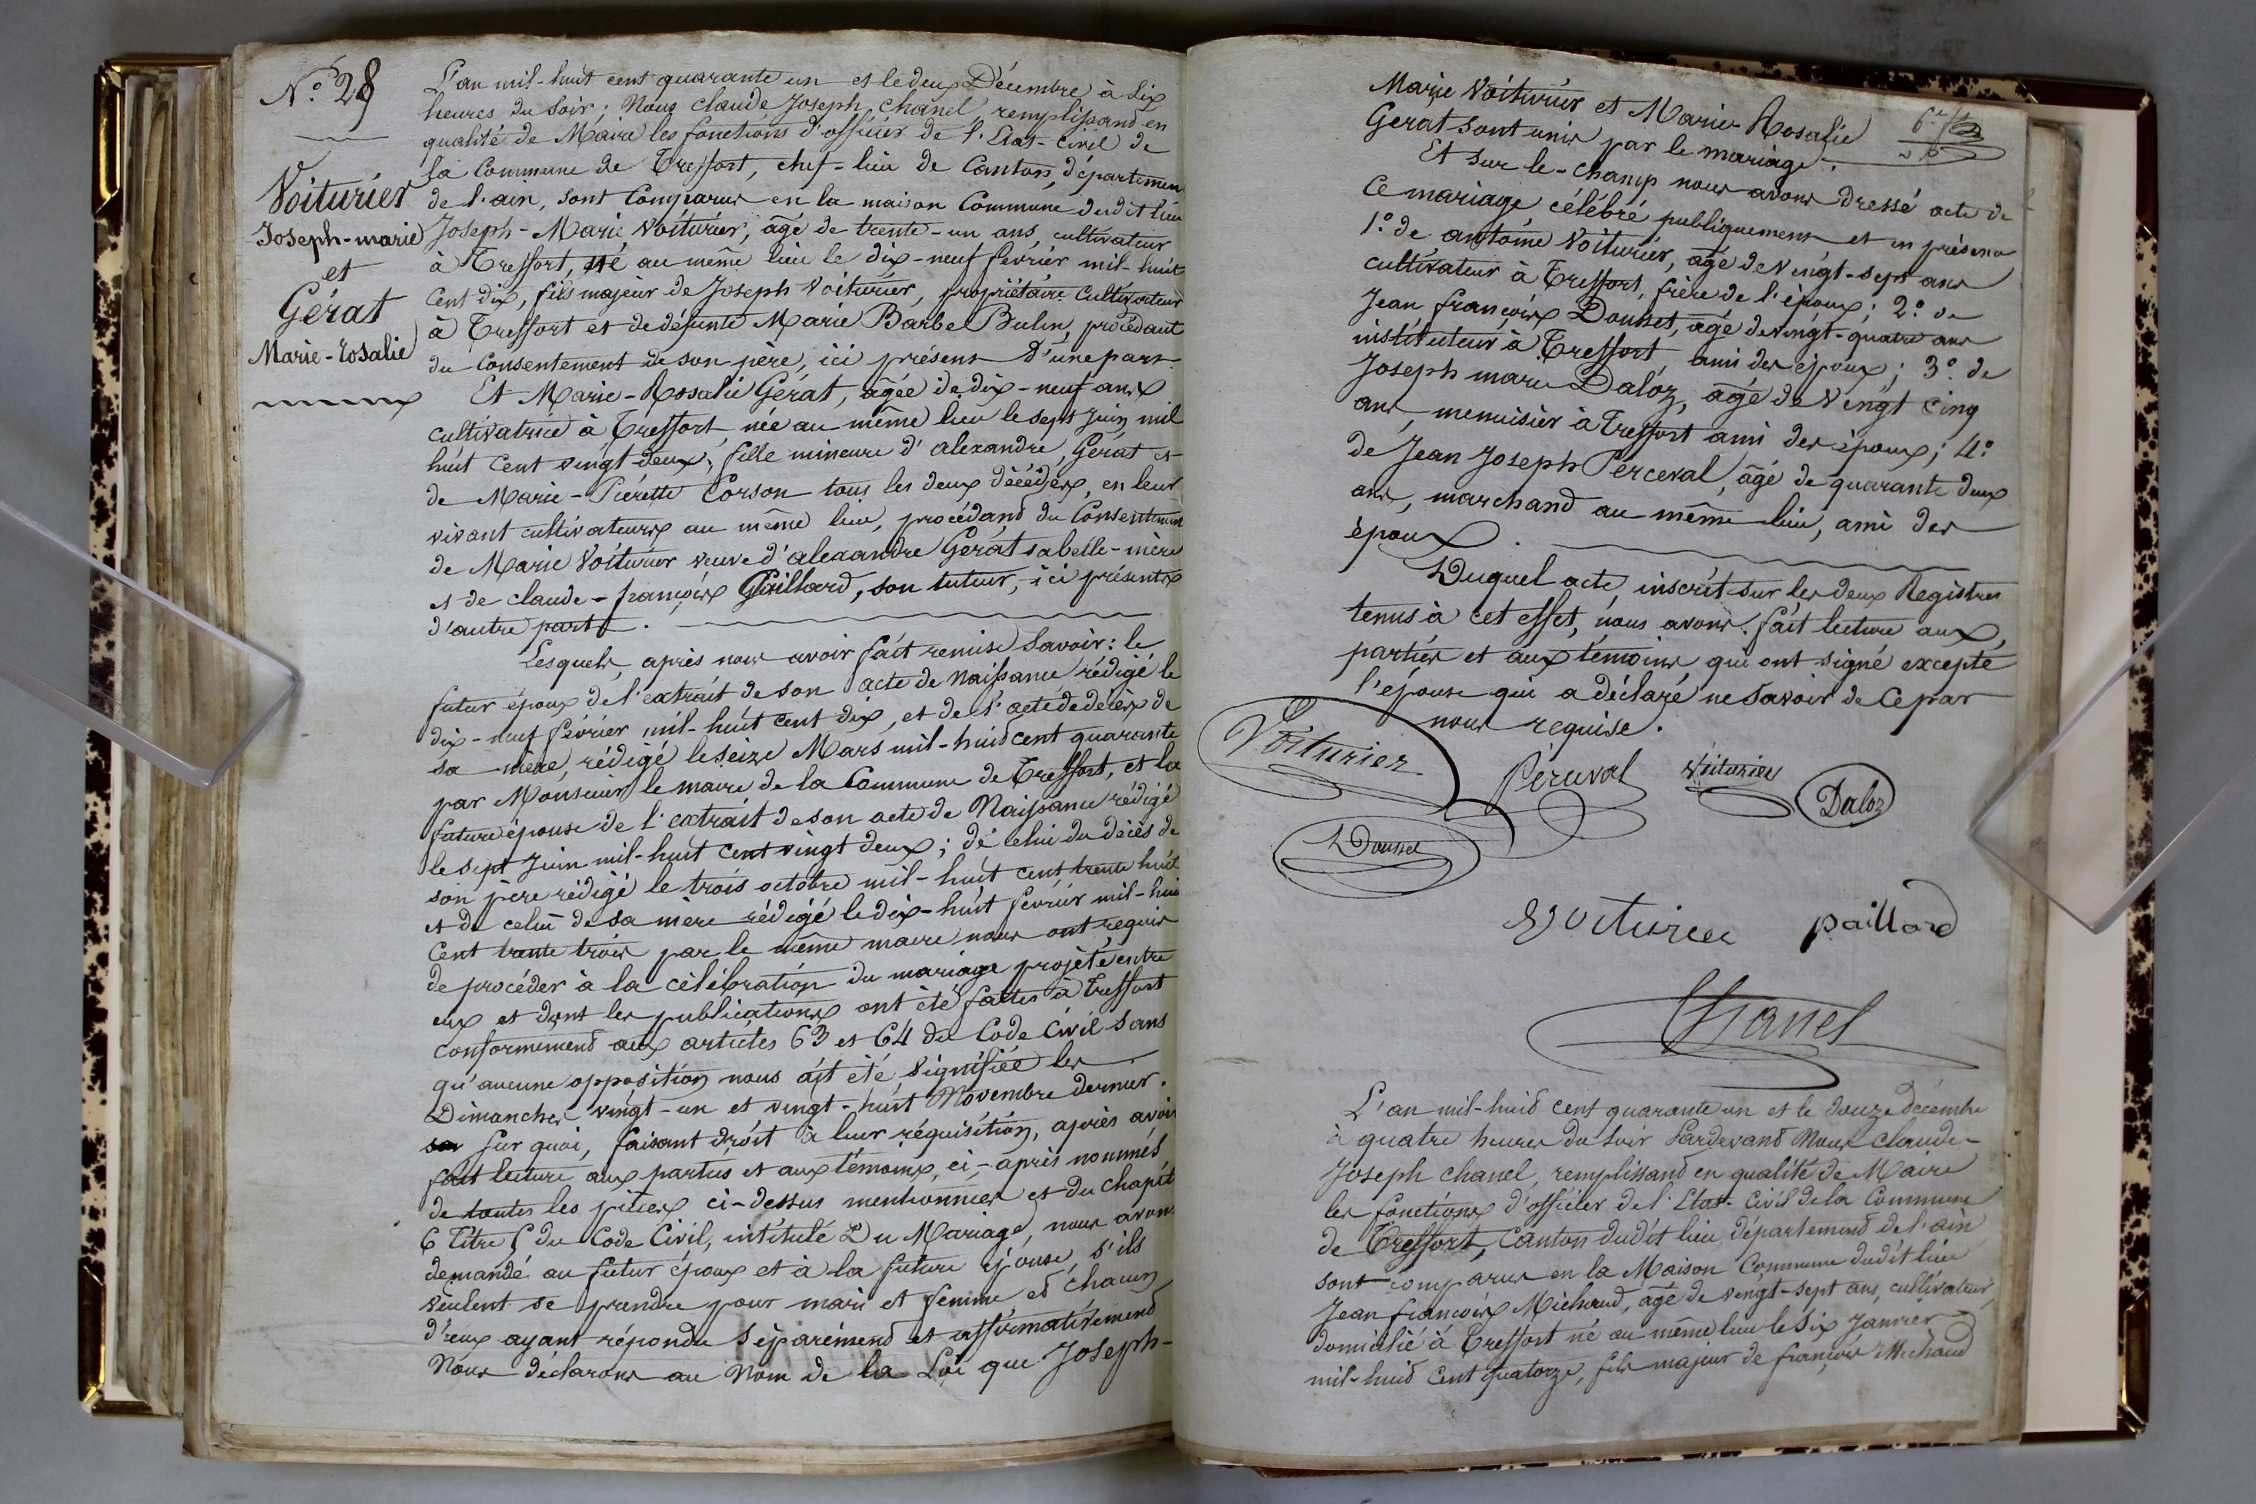 N.° 28
Voiturier
Joseph-marie
et
Gérat
Marie-rosalie
L'an mil-huit cent quarante un et le deux Décembre à six
heures du soir; Nous claude Joseph chanel, remplissand en
qualité de Maire les fonctions d'officier de l'Etat-Civil de
la Commune de Treffort, chef-lieu de Canton, départemen
de l'ain, sont Comparus en la maison Commune dudit lieu
Joseph-Marie Voiturier, âgé de trente-un ans, cultivateur
à Treffort, né au même lieu le dix-neuf février mil-huit
Cent dix, fils majeur de Joseph Voiturier, propriétaire Cultivateur
à Treffort et de défunte Marie Barbe Bulin, procédant
du Consentement de son père, ici présent d'une part
Et Marie-Rosalie Gérat, âgée de dix-neuf ans
cultivatrice à Treffort, née au même lieu le sept Juin mil
huit Cent vingt deux, fille mineure d'alexandre Gérat et
de Marie-Piérette Corson tous les deux décédés, en leur
vivant cultivateurs au même lieu, procédand du Consentement
de Marie Voiturier veuve d'alexandre Gérat sa belle-mère
et de claude-françois Paillard, son tuteur, ici présents
d'autre part.
Lesquels, après nous avoir fait remise Savoir: le
futur époux de l'extrait de son acte de Naissance rédigé le
dix-neuf février mil-huit cent dix, et de l'acte de décès de
sa mère, rédigé le seize Mars mil-huid cent quarante
par Monsieur le maire de la Commune de Treffort, et la
future épouse de l'extrait de son acte de Naissance rédigé
le sept Juin mil-huit cent vingt deux; de celui du décès de
son père rédigé le trois octobre mil-huit cent trente huit
et de celui de sa mère rédigé le dix-huit février mil-huit
Cent trente trois par le même maire nous ont requis
de procéder à la célébration du mariage projeté entre
eux et dont les publications ont été faites à Treffort
conformémend aux articles 63 et 64 du Code Civil sans
qu'aucune opposition nous ait été signifiée les
Dimanches vingt-un et vingt-huit Novembre dernier.
Sur quoi, faisant droit à leur réquisition, après avoir
fait lecture aux parties et aux témoins, ci-après nommés,
de toutes les pièces ci-dessus mentionnées et du chapit
6 Titre 5 du Code Civil, intitulé Du Mariage, nous avons
demandé au futur époux et à la future épouse, s'ils
veulent se prendre pour mari et femme ed chacun
d'eux ayant répondu séparémend et affirmativemend
Nous déclarons au Nom de la Loi que Joseph-
Marie Voiturier et Marie-Rosalie
Gerat sont unis par le mariage.
Et sur le-champ nous avons dressé acte de
Ce mariage célébré publiquement et en présence
1.° de antoine Voiturier, âgé de vingt-sept ans
cultivateur à Treffort, frère de l'époux; 2.° de
Jean françois Dousset, âgé de vingt-quatre ans
instituteur à Treffort ami des époux; 3.° de
Joseph marie Daloz, âgé de Vingt cinq
ans, menuisier à Treffort ami des époux; 4.°
de Jean Joseph Perceval, âgé de quarante deux
ans, marchand au même lieu, ami des
époux.
Duquel acte, inscrit sur les deux Registres
tenus à cet effet, nous avons fait lecture aux
parties et aux témoins qui ont signé excepté
l'épouse qui a déclaré ne savoir de ce par
nous requise.
Voiturier Perceval Voiturier Daloz
Dousset
Voiturier paillard
Chanel
L'an mil-huid cent quarante un et le douze décembre
à quatre heures du soir Pardevand Nous Claude-
Joseph chanel, remplissand en qualité de Maire
les fonctions d'officier de l'Etat-Civil de la Commune
de Treffort, Canton dudit lieu, départemend de l'ain
sont comparus en la Maison Commune dudit lieu
Jean françois Michaud, âgé de vingt-sept ans, cultivateur,
domicilié à Treffort né au même lieu le six Janvier
mil-huid Cent quatorze, fils majeur de françois Michaud